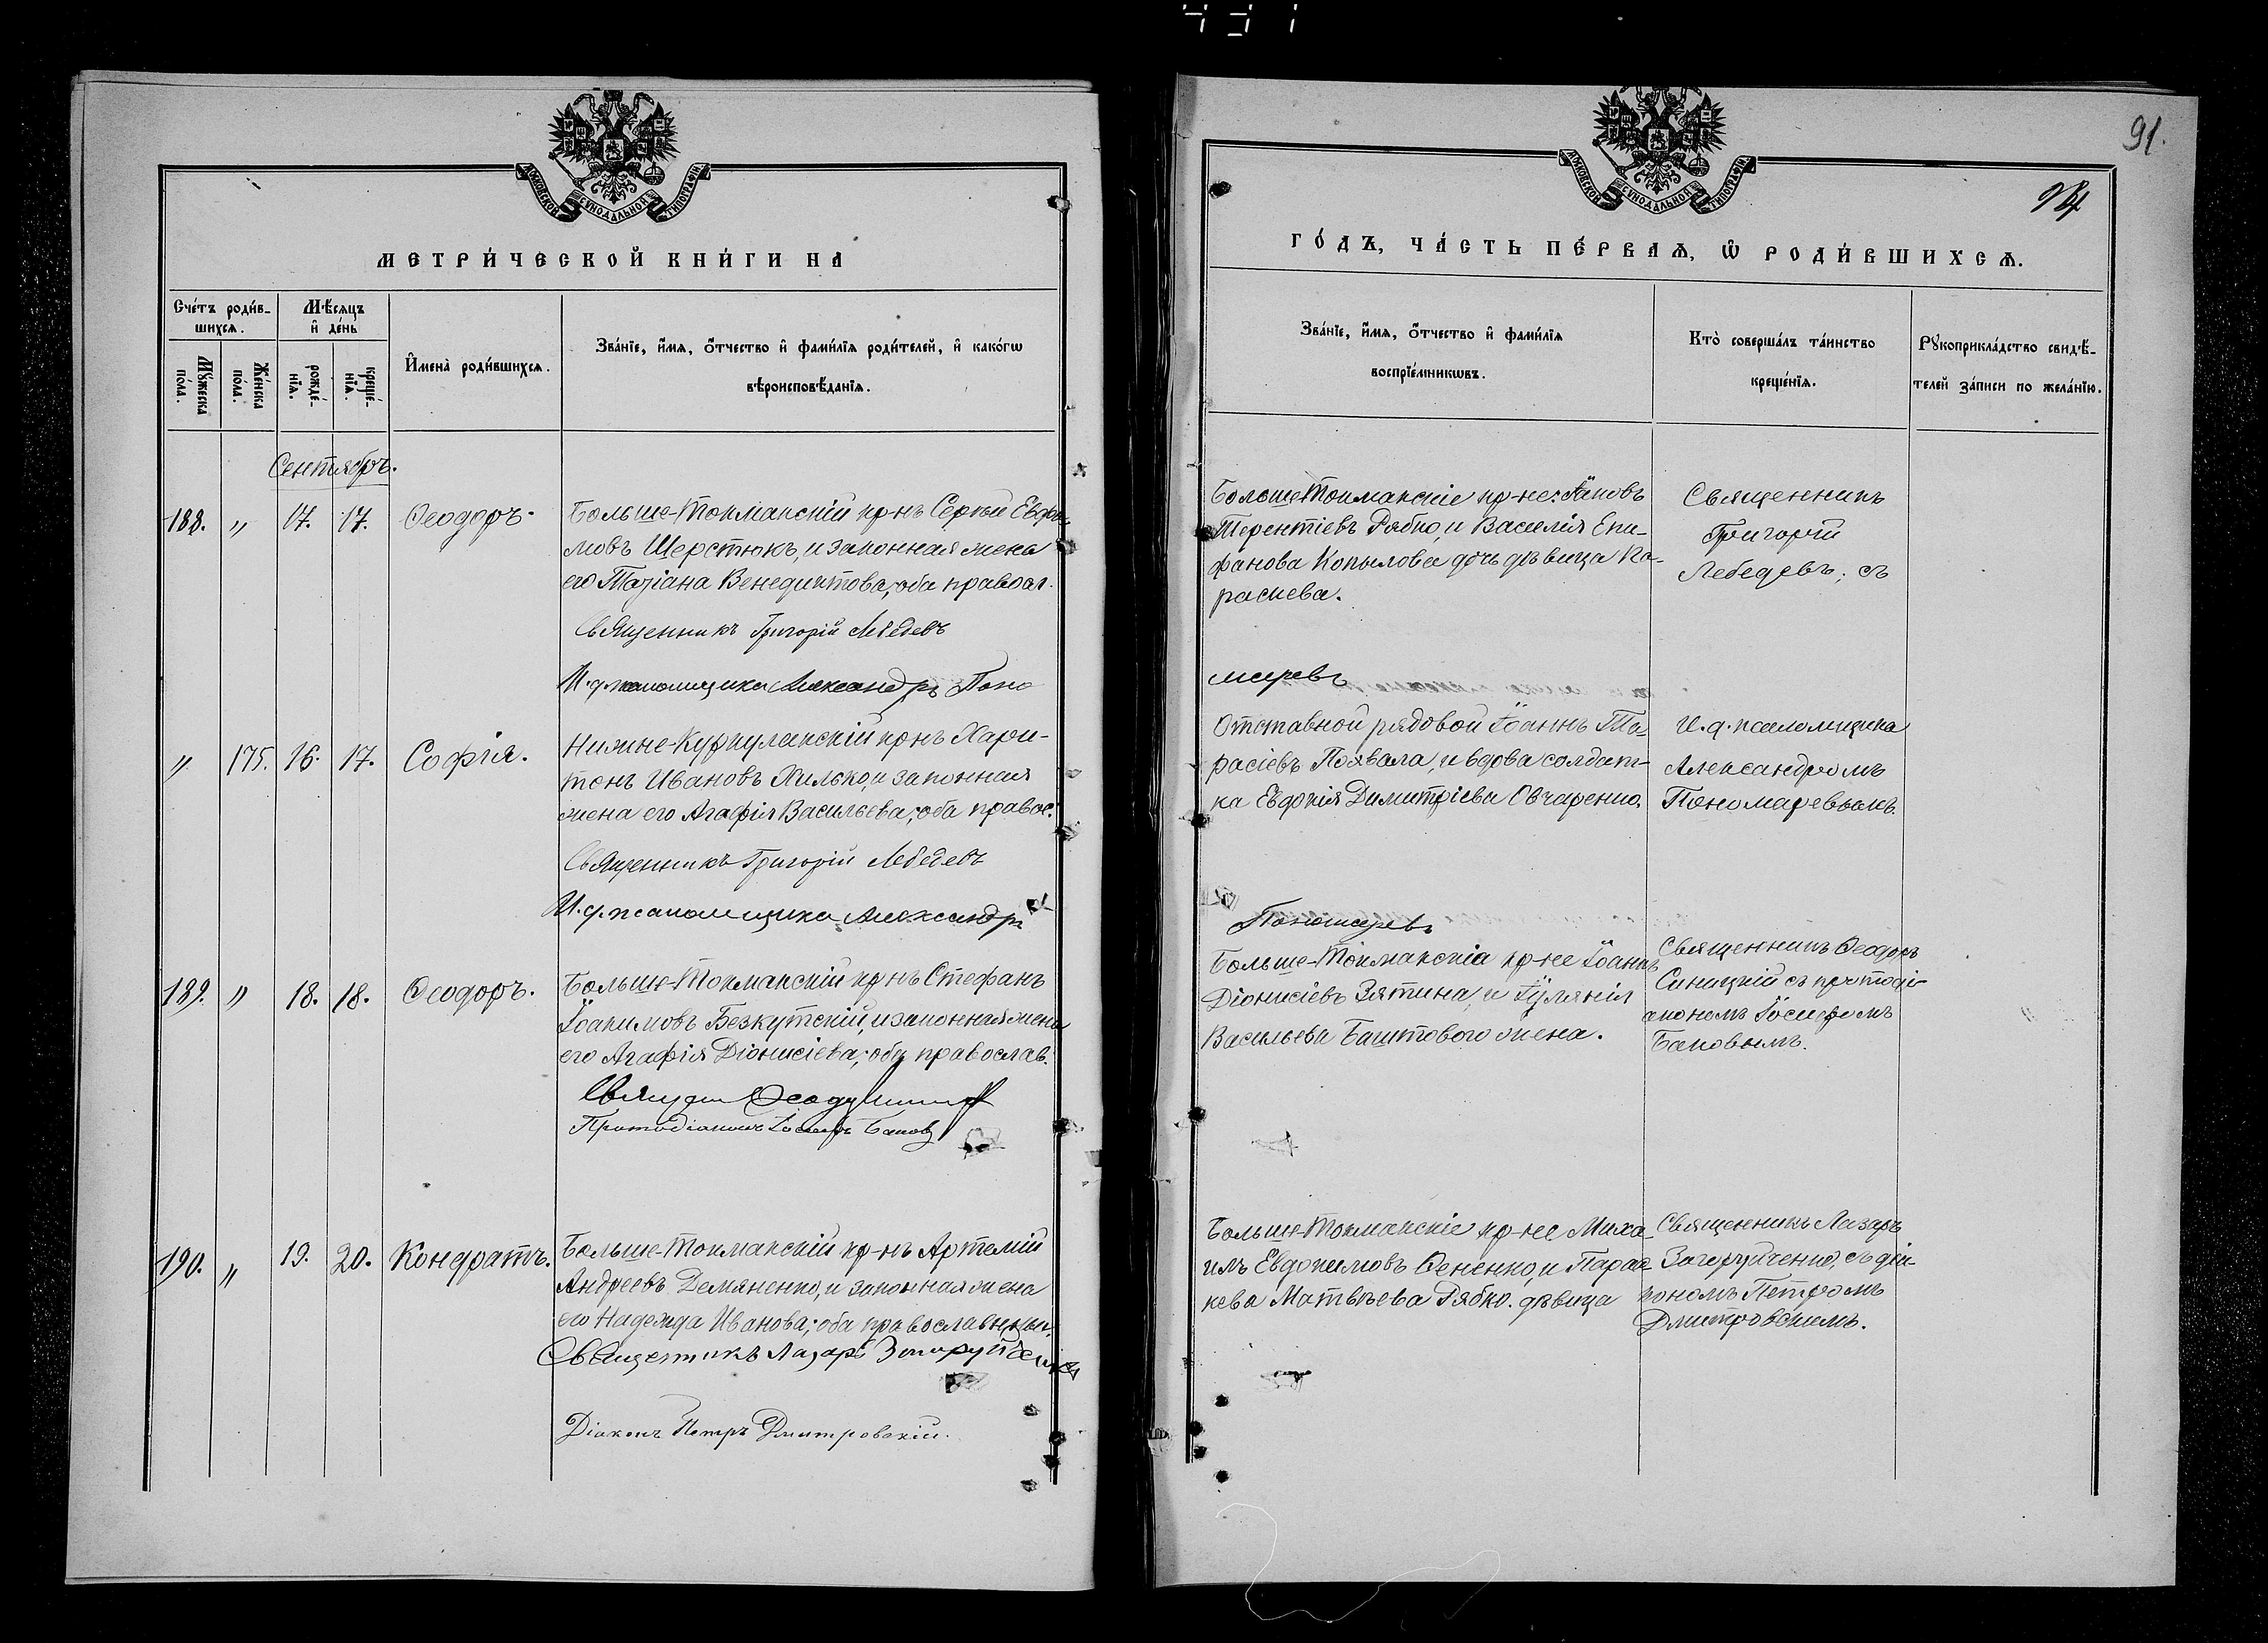 431
91.
94
МОСКОВСКОЙ СУНОДАЛЬНОЙ ТИПОГРАФІИ
МЕТРИ́ЧЕСКОЙ КНИ́ГИ НА
Сче́тъ роди́в-
шихсѧ.
Мꙋ́жеска по́ла.
Же́нска по́ла.
Мѣ́сѧцъ
и҆ де́нь
рожде́-
нїѧ.
креще́-
нїѧ.
И҆мена̀ роди́вшихсѧ.
Зва́нїе, и҆́мѧ, ѻ҆́тчество и҆ фами́лїѧ роди́телей, и҆ како́гѡ
вѣроисповѣ́данїѧ.
Сентябрь.
188. " 17. 17. Ѳеодоръ.
Больше-Токмакскій кр-нъ Сергѣй Евфи-
мовъ Шерстюкъ, и законная жена
его Татіана Венедиктова; оба правосл.
Священникъ Григорій Лебедевъ
И. д. псаломщика Александръ Поно
" 175. 16. 17. Софія.
Нижне-Куркулакскій кр-нъ Хари-
тонъ Ивановъ Хилько, и законная
жена его Агафія Васильева; оба правос.
Священникъ Григорій Лебедевъ
И. д. псаломщика Александръ
189. " 18. 18. Ѳеодоръ.
Больше-Токмакскій кр-нъ Стефанъ
Іоакимовъ Безкутскій, и законная жена
его Агафія Діонисіева; оба православ.
Протодіаконъ Іосифъ Баковъ
190. " 19. 20. Кондратъ.
Больше-Токмакскій кр-нъ Артемій
Андреевъ Демяненко, и законная жена
его Надежда Иванова; оба православные.
Священникъ Лазарь Загоруйченко
Діаконъ Петръ Дмитровскій.
МОСКОВСКОЙ СУНОДАЛЬНОЙ ТИПОГРАФІИ
ГО́ДЪ, ЧА́СТЬ ПЕ́РВАѦ, Ѡ҆ РОДИ́ВШИХСѦ.
Зва́нїе, и҆́мѧ, ѻ҆́тчество и҆ фами́лїѧ
воспрїе́мникѡвъ.
Кто̀ соверша́лъ та́инство
креще́нїѧ.
Рꙋкоприкла́дство свидѣ́-
телей за́писи по жела́нїю.
Больше-Токмакскіе кр-не: Іаковъ
Терентіевъ Рябко, и Василія Епи-
фанова Копылова дочь дѣвица Па-
раскева.
Священникъ
Григорій
Лебедевъ; съ
маревъ
Отставной рядовой Іоаннъ Та-
расіевъ Появала, и вдова солдат-
ка Евдокія Димитріева Овчаренко.
И. д. псаломщика
Александромъ
Пономаревымъ.
Пономаревъ
Больше-Токмакскіа кр-не Іоаннъ
Діонисіевъ Зятина, и Іуліанія
Васильева Баштового жена.
Священникъ Ѳеодоръ
Синицкій съ протоді-
акономъ Іосифомъ
Баковымъ.
Больше-Токмакскіе кр-не Миха-
илъ Евдокимовъ Ѳененко, и Парас-
кева Матвѣева Рябко. дѣвица
Священникъ Лазарь
Загоруйченко, съ діа-
кономъ Петромъ
Дмитровскимъ.